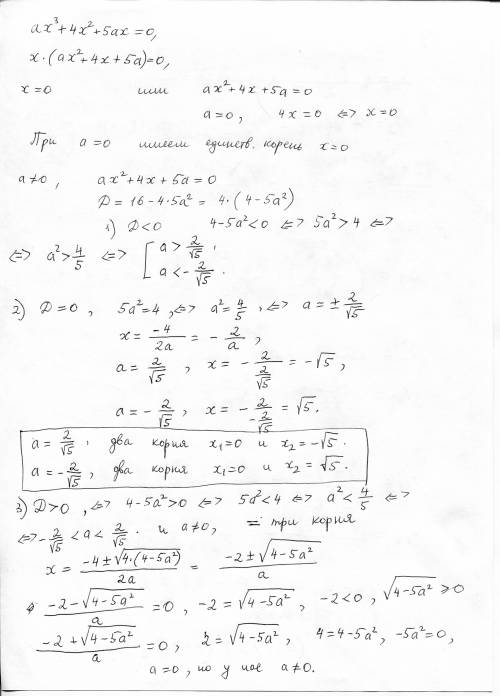 ax³+4x²+5ax=0,
x·(ax²+4x+5a)=0,
x=0 или ax²+4x+5a=0
a=0, 4x=0 ⇔ x=0
При a=0 имеем единств. корень x=0
a≠0, ax²+4x+5a=0
D=16-4·5a²=4·(4-5a²)
1) D<0 4-5a²<0 ⇔ 5a²>4 ⇔
⇔ a²>4/5 ⇔ [a>2/√5, a<-2/√5.
2) D=0, 5a²=4, ⇔ a²=4/5, ⇔ a=±2/√5
x=-4/2a=-2/a,
a=2/√5, x=-2/(2/√5)=-√5,
a=-2/√5, x=-2/(-2/√5)=√5.
a=2/√5, два корня x₁=0 и x₂=-√5.
a=-2/√5, два корня x₁=0 и x₂=√5.
3) D>0, ⇔ 4-5a²>0 ⇔ 5a²<4 ⇔ a²<4/5 ⇔
⇔-2/√5<a<2/√5. и a≠0, = три корня
x=(-4±√(4·(4-5a²)))/2a=(-2±√(4-5a²))/a
(-2-√(4-5a²))/a=0, -2=√(4-5a²), -2<0, √(4-5a²)≥0
(-2+√(4-5a²))/a=0, 2=√(4-5a²), 4=4-5a², -5a²=0,
a=0, но у нас a≠0.